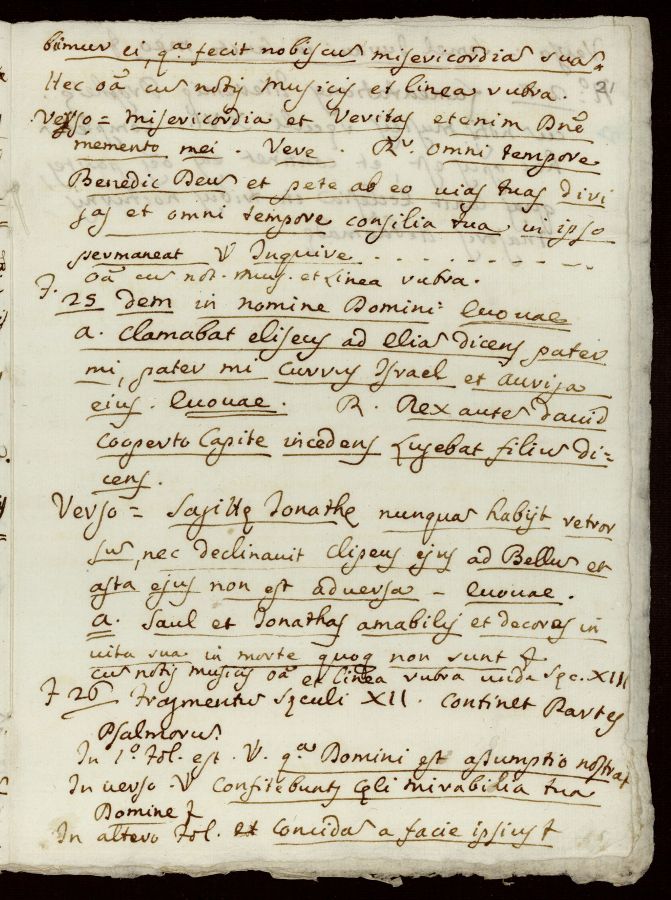 bimur ei, q.ª fecit nobiscus misericordias suas.
Hec oã cus notis Musicis et linea rubra.
21
Verso = Misericordia et Veritas etenim Dnẽ
memento mei. Vere. R.v omni tempore
Benedic Deus et pete ab eo uias tuas diri
gas et omni tempore consilia tua in ipso
permaneat V Inquire . . . . . .
oã cus not. mus. et Linea rubra.
F.
25 dem in nomine Domini euouae
a. Clamabat eliseus ad elias dicens pater
mi, pater mi Currus Israel et Auriga
eius. euouae. R. Rex autes david
Cooperto Capite incedens Lugebat filius di=
cens.
Verso = Sagitte Jonathe nunquas habijt retror
sus, nec declinauit clipeus ejus ad Bellus et
asta ejus non est aduersa - euouae.
a. Saul et Jonathas amabiles et decores in
uita sua in morte quoq non sunt F
cus notis musicis oã et linea rubra Sec. XIII
F 26 Fragmentus seculi XII. Continet Partes
Psalmorus.
In 1.º fol. est. V. q.ªs Domini est assumptio nostra F
In uerso V Confitebunts celi mirabilia tua
Domine F
In altero fol. et Concidas a facie ipsius F